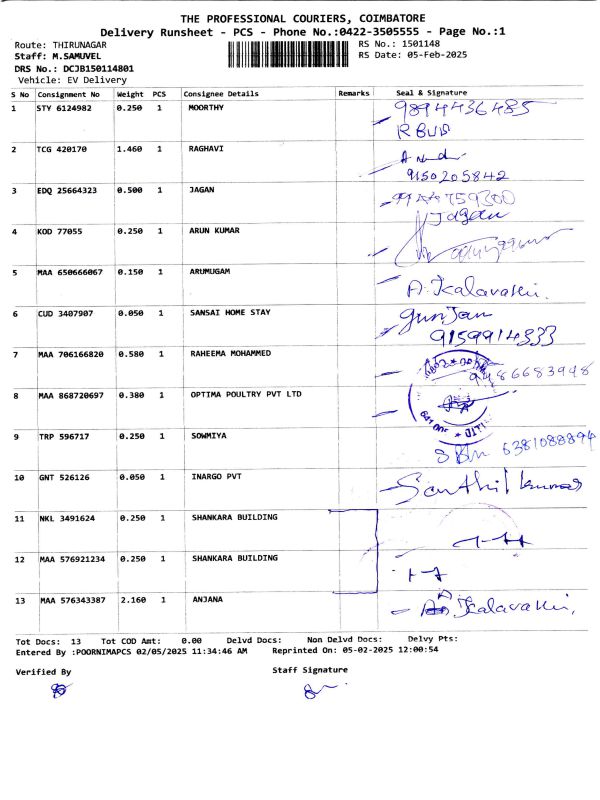 THE PROFESSIONAL COURIERS, COIMBATORE
Delivery Runsheet - PCS - Phone No.:0422-3505555 - Page No.:1
Route: THIRUNAGAR
Staff: M.SAMUVEL
DRS No.: DCJB150114801
Vehicle: EV Delivery
RS No.: 1501148
RS Date: 05-Feb-2025
S No Consignment No Weight PCS Consignee Details Remarks Seal & Signature
1 STY 6124982 0.250 1 MOORTHY 9894436485
2 TCG 420170 1.460 1 RAGHAVI
9150205842
3 EDQ 25664323 0.500 1 JAGAN
Jagan
4 KOD 77055 0.250 1 ARUN KUMAR
5 MAA 650666067 0.150 1 ARUMUGAM
A. Kalavathi.
6 CUD 3407907 0.050 1 SANSAI HOME STAY Gunjan
9159914333
7 MAA 706166820 0.580 1 RAHEEMA MOHAMMED
9486683948
8 MAA 868720697 0.380 1 OPTIMA POULTRY PVT LTD
9 TRP 596717 0.250 1 SOWMIYA
6381088894
10 GNT 526126 0.050 1 INARGO PVT Santhil kumar
11 NKL 3491624 0.250 1 SHANKARA BUILDING
12 MAA 576921234 0.250 1 SHANKARA BUILDING
13 MAA 576343387 2.160 1 ANJANA Kalavathi,
Tot Docs: 13 Tot COD Amt: 0.00 Delvd Docs: Non Delvd Docs: Delvy Pts:
Entered By :POORNIMAPCS 02/05/2025 11:34:46 AM Reprinted On: 05-02-2025 12:00:54
Verified By Staff Signature